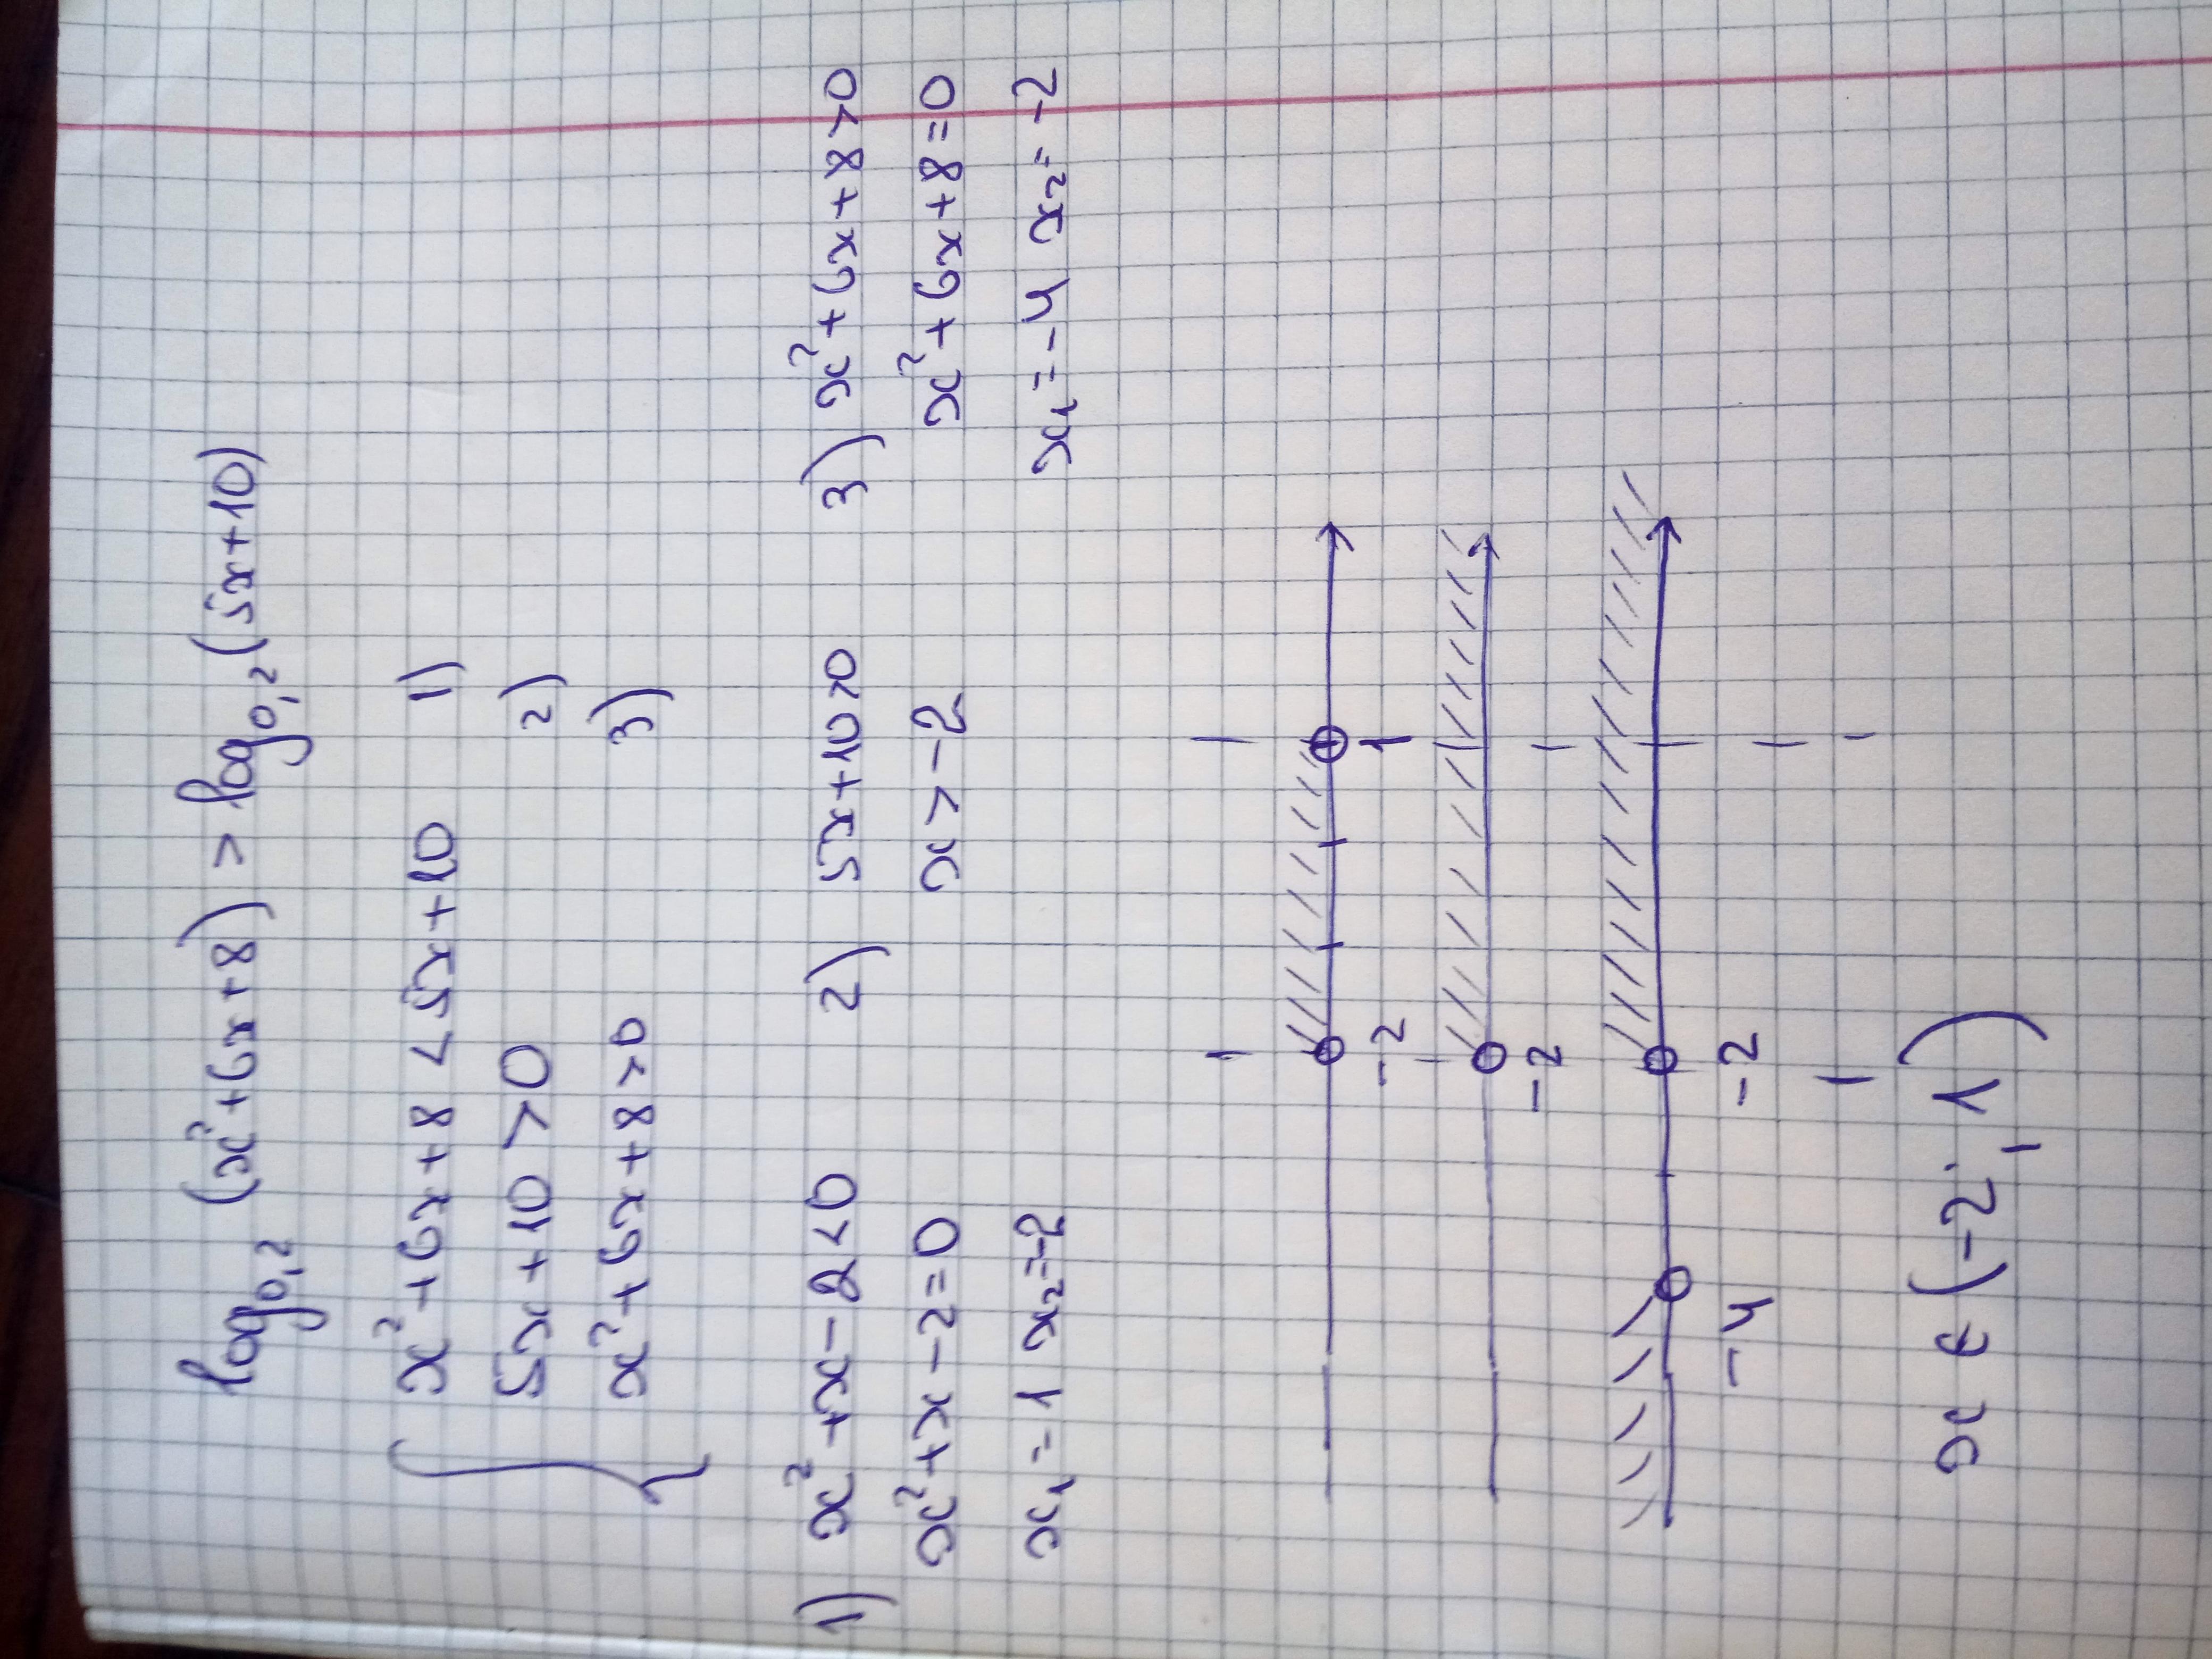 log₀,₂ (x²+6x+8) > log₀,₂(5x+10)
x²+6x+8 < 5x+10 1)
5x+10 > 0 2)
x²+6x+8>0 3)
1) x²+x-2<0 2) 5x+10>0 3) x²+6x+8>0
x²+x-2=0 x>-2 x²+6x+8=0
x₁=1 x₂=-2 x₁=-4 x₂=-2
-2 1
-2
-4 -2
x ∈ (-2; 1)